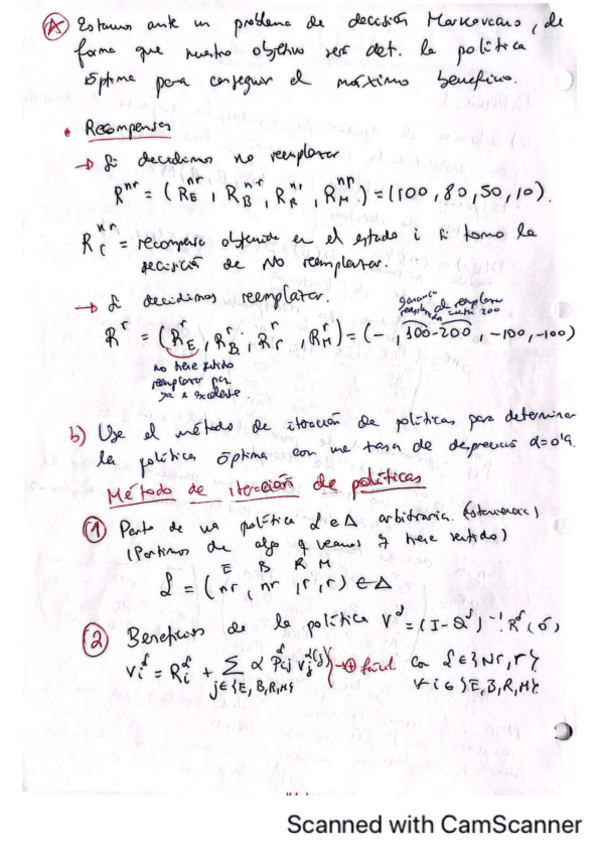 (A) Estamos ante un problema de decisión Markoviano, de
forma que nuestro objetivo será det. la política
óptima para conseguir el máximo beneficio.
• Recompensas
→ Si decidimos no reemplazar
R^nr = (R_E^nr, R_B^nr, R_R^nr, R_M^nr) = (100, 80, 50, 10).
R_i^nr = recompensa obtenida en el estado i si tomo la
decisión de NO reemplazar.
→ Si decidimos reemplazar.
R^r = (R_E^r, R_B^r, R_r^r, R_M^r) = (-, 100-200, -100, -100)
no tiene sentido
reemplazar por
ya es excelente.
b) Use el método de iteración de políticas para determinar
la política óptima con una tasa de α=0'9.
Método de iteración de políticas
(1) Parto de una política d ∈ Δ arbitraria. (estacionaria)
(Partimos de algo q veamos q tiene sentido)
E B R M
d = (nr, nr, r, r) ∈ Δ
(2) Beneficios de la política V^d = (I-Q^d)^-1 R^d (ó),
V_i^d = R_i^d + Σ α P_ij^d V_j^d(j) → ⊕ fácil con d ∈ {Nr, r}
j∈{E, B, R, M} ∀ i ∈ {E, B, R, M}.
Scanned with CamScanner